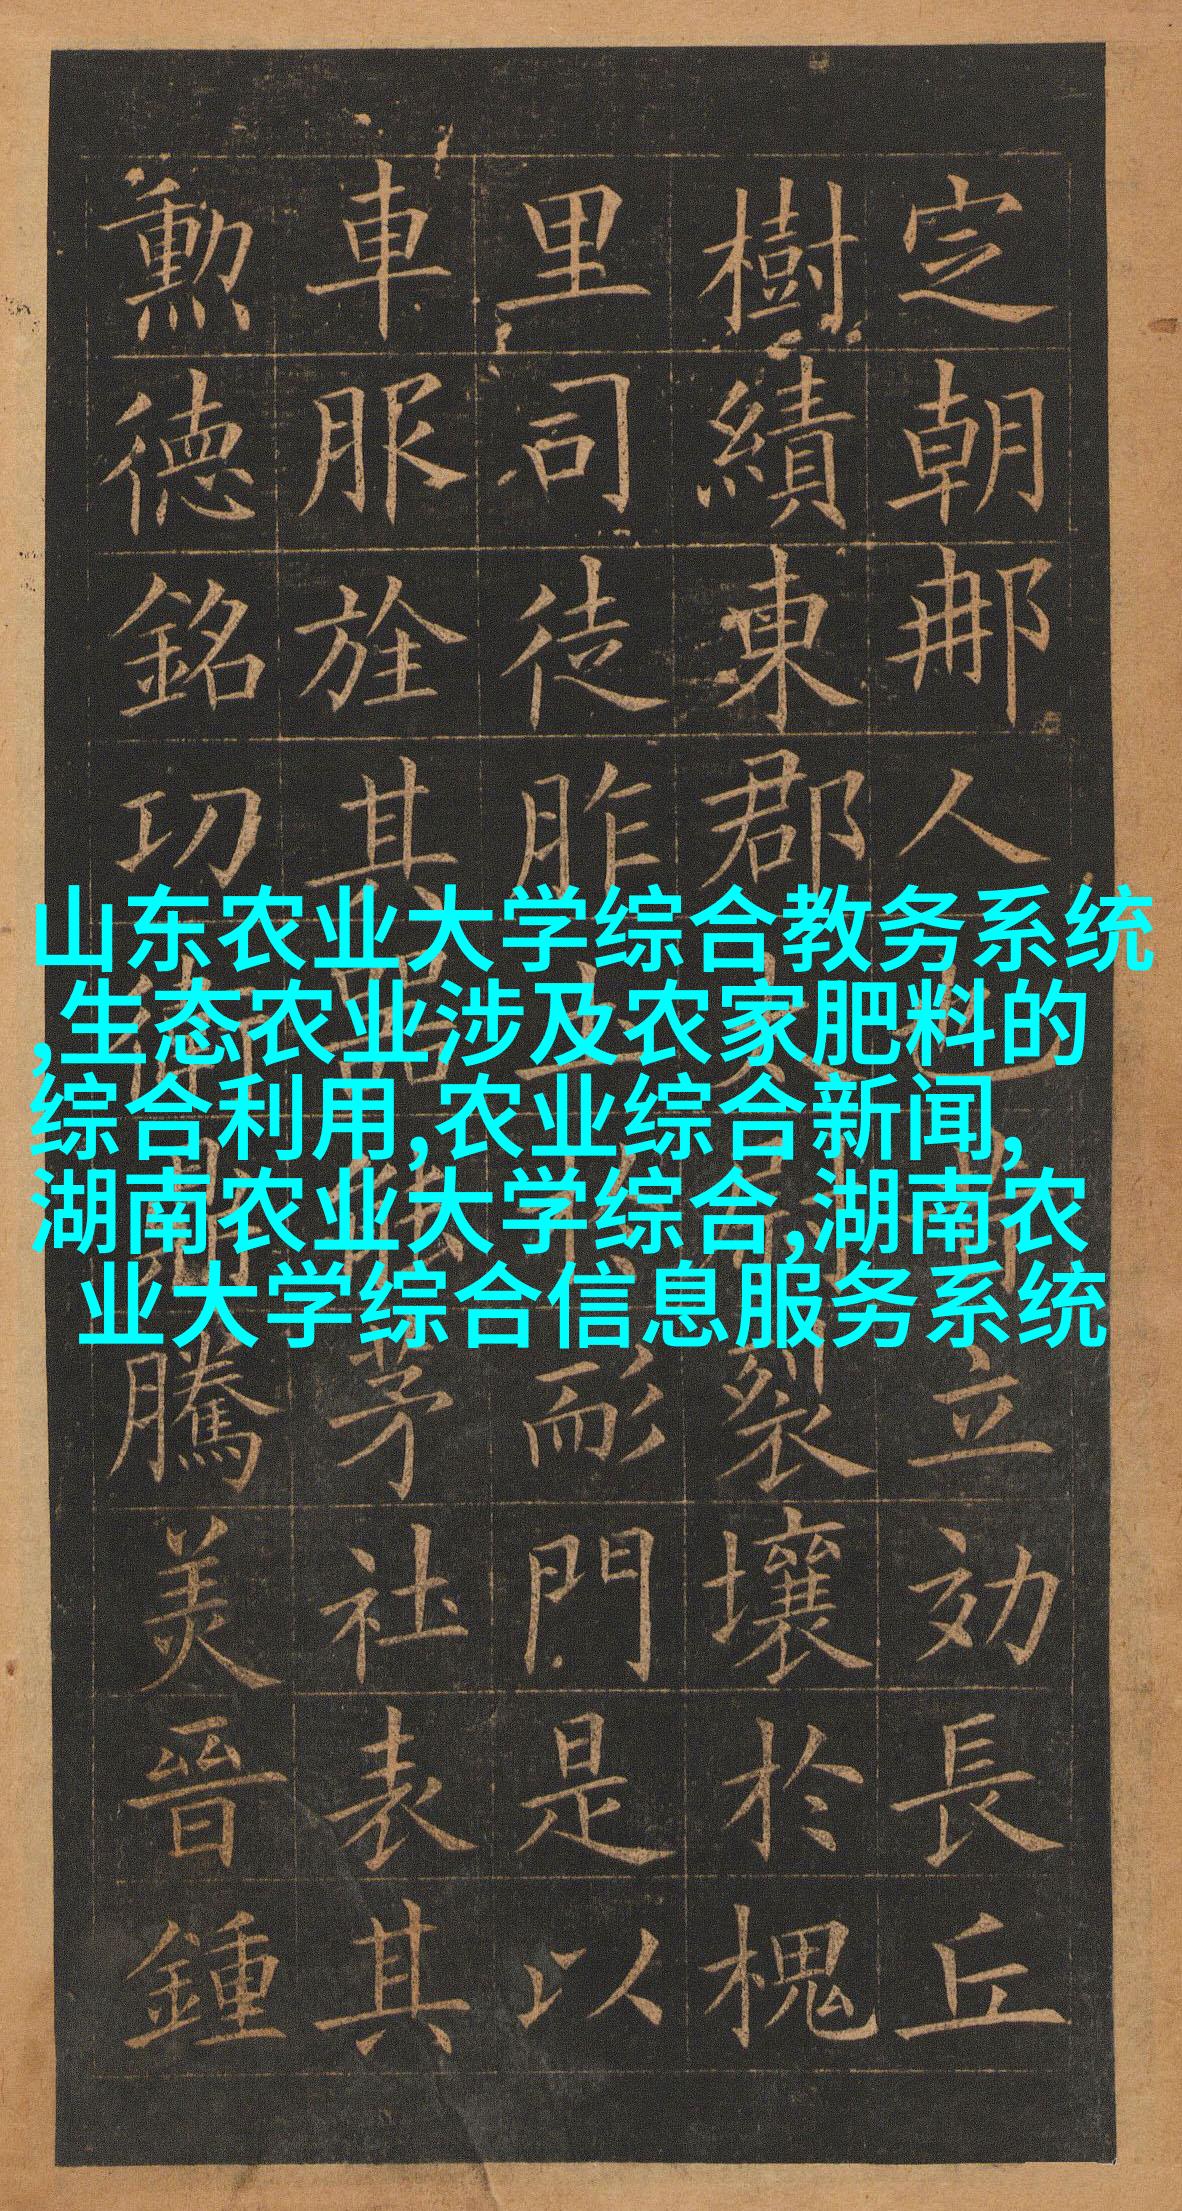 定朝那人也昔立効長丘
樹績東郡太尉裂壤於槐
里司徒胙土於耏門是以
車服旌其器能茅社表其
勳德銘功衛鼎騰美晉鍾
山东农业大学综合教务系统
,生态农业涉及农家肥料的
综合利用,农业综合新闻,
湖南农业大学综合,湖南农
业大学综合信息服务系统